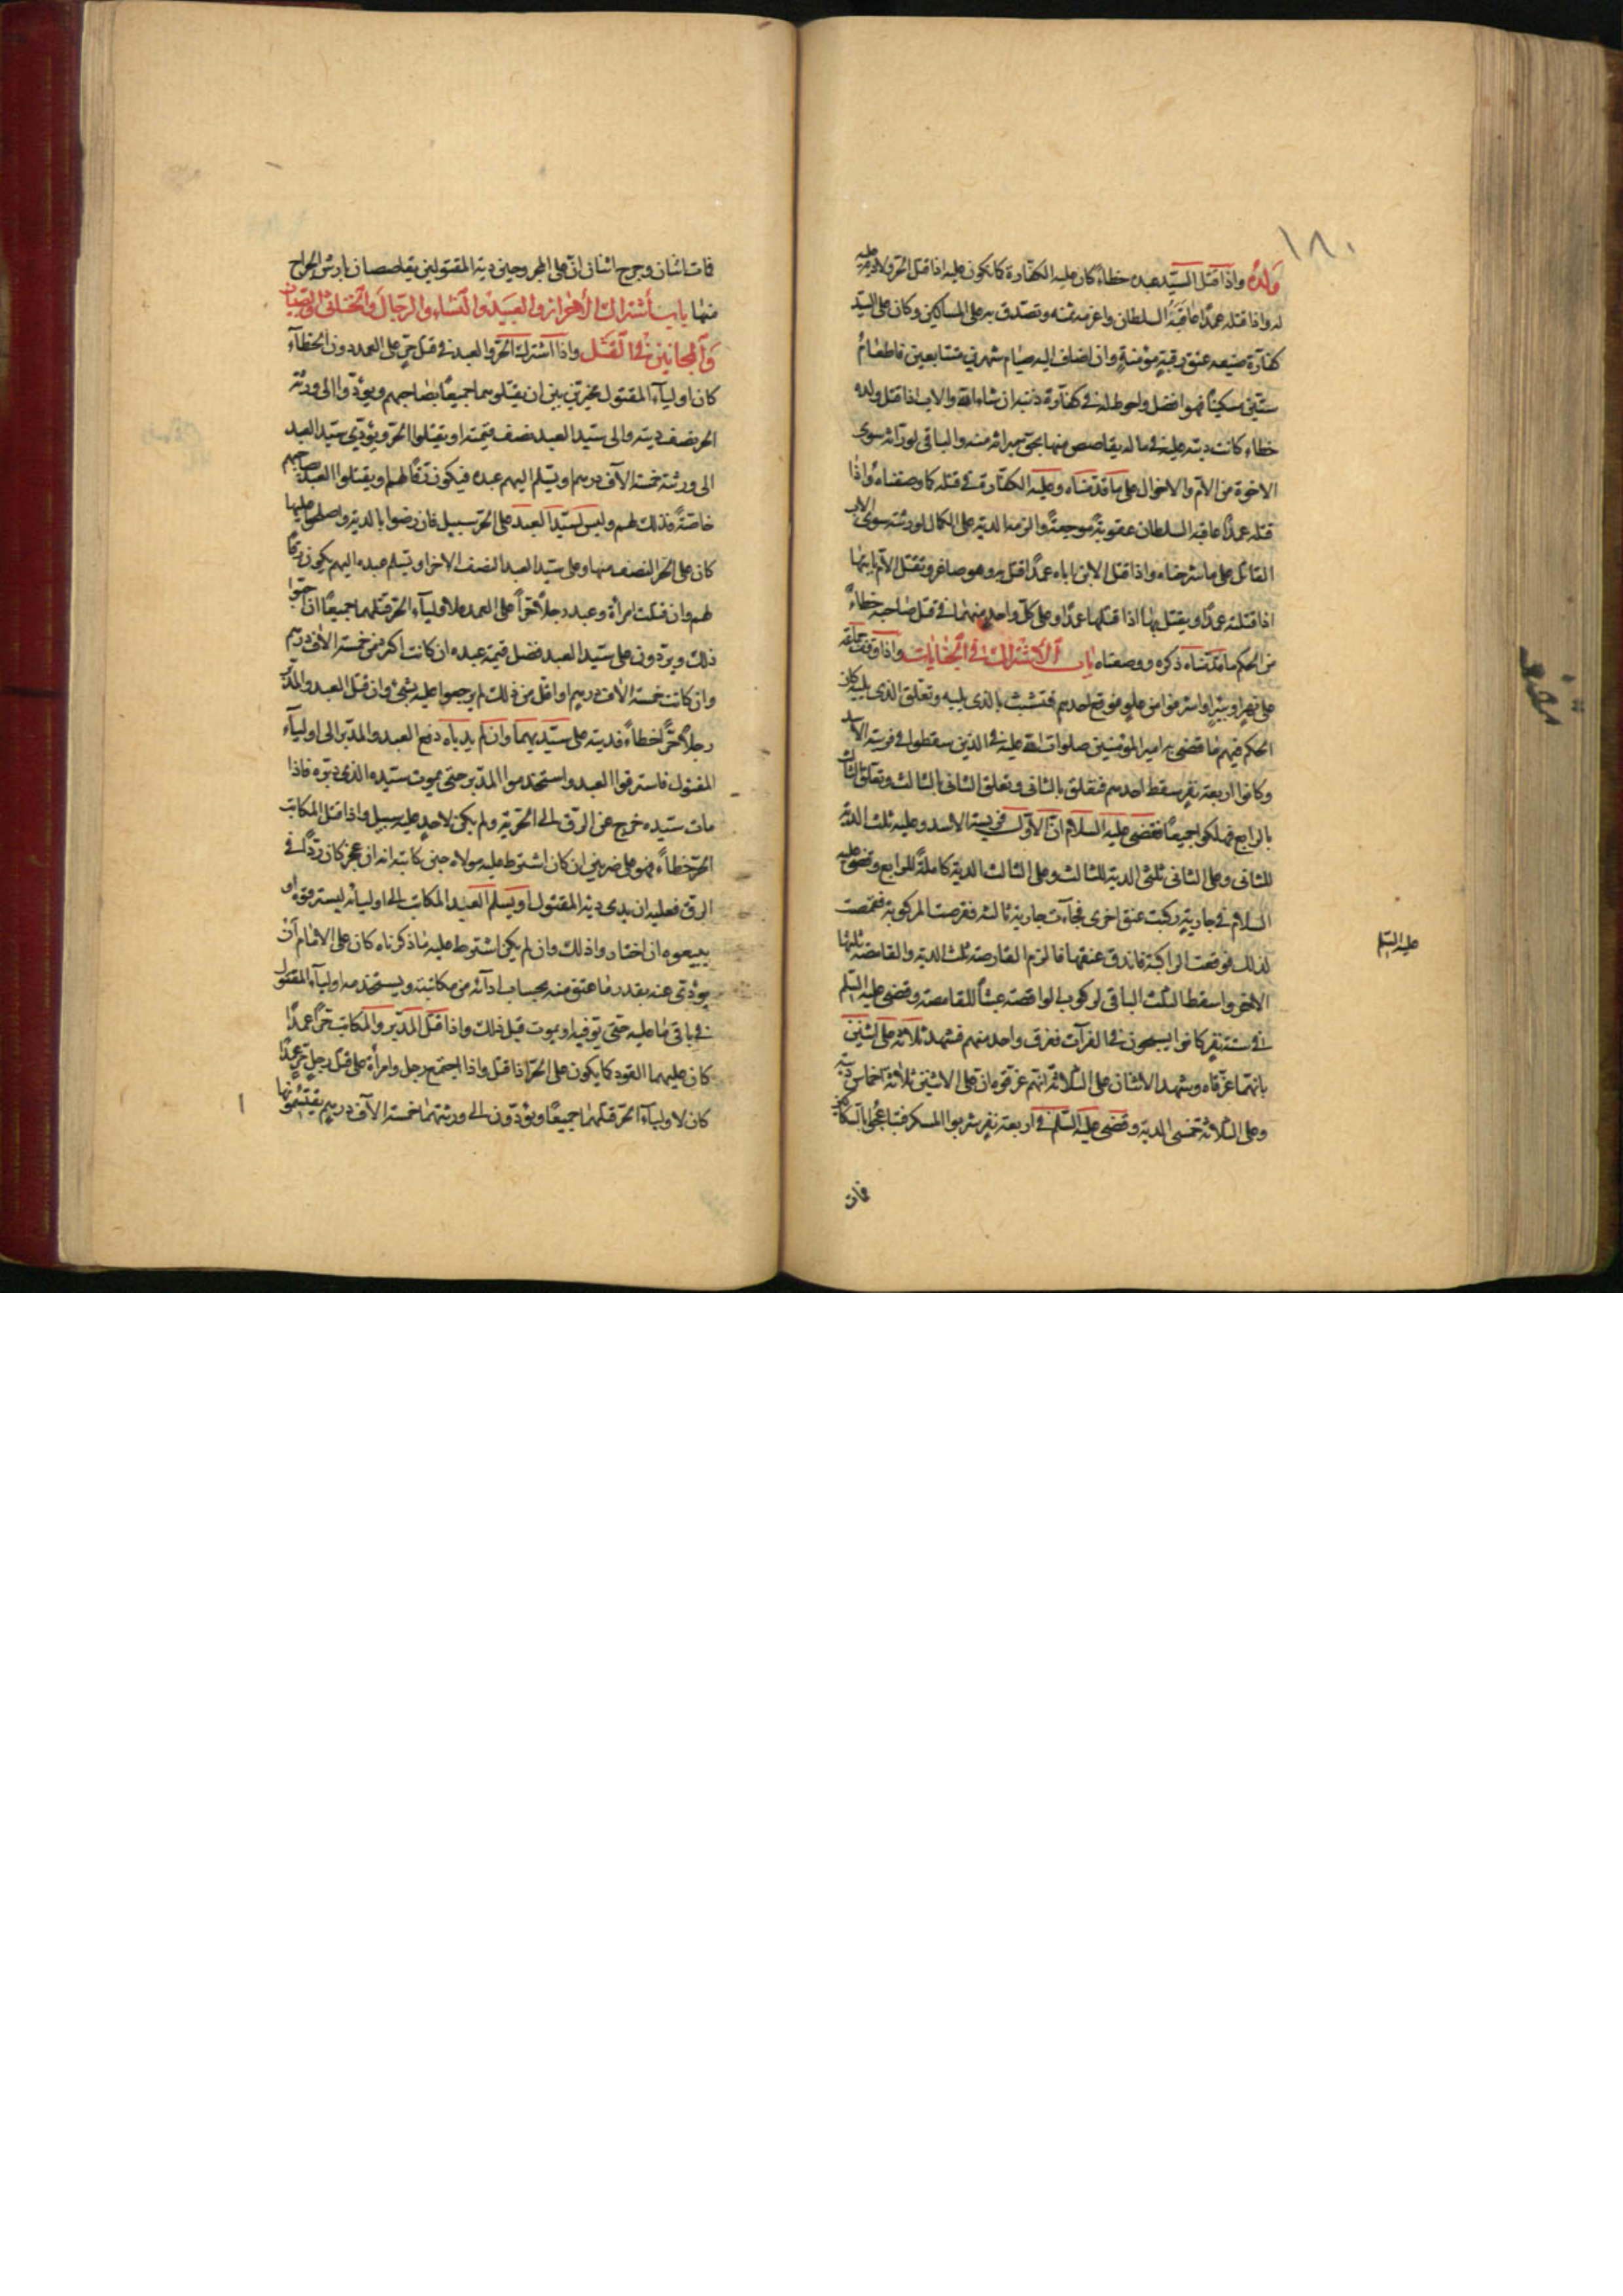 ١٨٠
ولده واذا قتل السيد عبده خطاء كان عليه الكفارة كما تكون عليه اذا قتل الحر ولا دية عليه
له واذا قتله عمدا عاقبه السلطان واغرمه ثمنه وتصدق به على المساكين وكان على السيد
كفارة صنيعه عتق رقبة مؤمنة وان اضاف اليه صيام شهرين متتابعين فاطعام
ستين مسكينا فهو افضل واحوط له في كفارة ذنبه ان شاء الله والاب اذا قتل ولده
خطاء كانت ديته عليه في ماله يقاصص منها بحق ميراثه منه والباقي لورثته سوى
الاخوة من الام والاخوال على ما قدمناه وعليه الكفارة في قتله كما وصفناه واذا
قتله عمدا عاقبه السلطان عقوبة موجعة والزمه الدية على الكمال لورثته سوى الاب
القاتل على ما شرحناه واذا قتل الابن اباه عمدا قتل به وهو صاغر وتقتل الام بابنها
اذا قتلته عمدا ويقتل بها اذا قتلها عمدا وعلى كل واحد منهما في قتل صاحبه خطاء
من الحكم ما قدمناه ذكره ووصفناه باب الاشتراك في الجنايات واذا وقف جماعة
على نهر او بئر او اشرفوا من علو فوقع احدهم فتشبث بالذي يليه وتعلق الذي يليه كان
الحكم فيهم ما قضى به امير المؤمنين صلوات الله عليه في الذين سقطوا في فريسة الاسد
وكانوا اربعة نفر سقط احدهم فتعلق بالثاني وتعلق الثاني بالثالث وتعلق الثالث
بالرابع فهلكوا جميعا فقضى عليه السلام ان الاول فريسة الاسد وعليه ثلث الدية
للثاني وعلى الثاني ثلثي الدية للثالث وعلى الثالث الدية كاملة للرابع وقضى عليه
السلام في جارية ركبت عنق اخرى فجاءت جارية ثالثة فقرصت المركوبة فقمصت
لذلك فوقعت الراكبة فاندق عنقها فالزم القارصة ثلث الدية والقامصة ثلثها
الاخر واسقط الثلث الباقي لركوب الواقصة عبثا للقامصة وقضى عليه السلم
في ستة نفر كانوا يسبحون في الفرات فغرق واحد منهم فشهد ثلاثة على اثنين
بانهما غرقاه وشهد الاثنان على الثلاثة انهم غرقوه ان على الاثنين ثلاثة اخماس ديته
وعلى الثلاثة خمسي الدية وقضى عليه السلم في اربعة نفر شربوا المسكر فتباعجوا بالسكاكين
فمات
عليه السلم
فمات اثنان وجرح اثنان ان على المجروحين دية المقتولين يقاصصان بارش الجراح
منها باب اشتراك الاحرار والعبيد والنساء والرجال والخناثى والصبيان
والمجانين في القتل واذا اشترك الحر والعبد في قتل حر على العمد دون الخطاء
كان اولياء المقتول مخيرين بين ان يقتلوهما جميعا بصاحبهم ويؤدوا الى ورثة
الحر نصف ديته والى سيد العبد نصف قيمته او يقتلوا الحر ويؤدي سيد العبد
الى ورثته خمسة الاف درهم او يسلم اليهم عبده فيكون رقا لهم او يقتلوا العبد بصاحبهم
خاصة فذلك لهم وليس لسيد العبد على الحر سبيل فان رضوا بالدية واصطلحوا عليها
كان على الحر النصف منها وعلى سيد العبد النصف الاخر او يسلم عبده اليهم يكون رقا
لهم وان قتلت امرأة وعبد رجلا حرا على العمد فلاولياء الحر قتلهما جميعا ان احبوا
ذلك ويردون على سيد العبد فضل قيمة عبده ان كانت اكثر من خمسة الاف درهم
وان كانت خمسة الاف درهم او اقل من ذلك لم يرجعوا عليه بشئ وان قتل العبد والمدبر
رجلا حرا خطاء فديته على سيديهما وان لم يدياه دفع العبد والمدبر الى اولياء
المقتول فاسترقوا العبد واستخدموا المدبر حتى يموت سيده الذي دبره فاذا
مات سيده خرج عن الرق الى الحرية ولم يكن لاحد عليه سبيل واذا قتل المكاتب
الحر خطاء فهو على ضربين ان كان اشترط عليه مولاه حين كاتبه انه ان عجز كان ردا في
الرق فعليه ان يدي دية المقتول او يسلم العبد المكاتب الى اوليائه ليسترقوه او
يبيعوه ان اختاروا ذلك وان لم يكن اشترط عليه ما ذكرناه كان على الامام ان
يؤدي عنه بقدر ما عتق منه بحساب ادائه من مكاتبته ويستخدمه اولياء المقتول
في باقي ما عليه حتى يوفيه او يموت قبل ذلك واذا قتل المدبر والمكاتب حرا عمدا
كان عليهما القود كما يكون على الحر اذا قتل واذا اجتمع رجل وامرأة على قتل رجل حر عمدا
كان لاولياء الحر قتلهما جميعا ويؤدون الى ورثتهما خمسة الاف درهم يقتسمونها